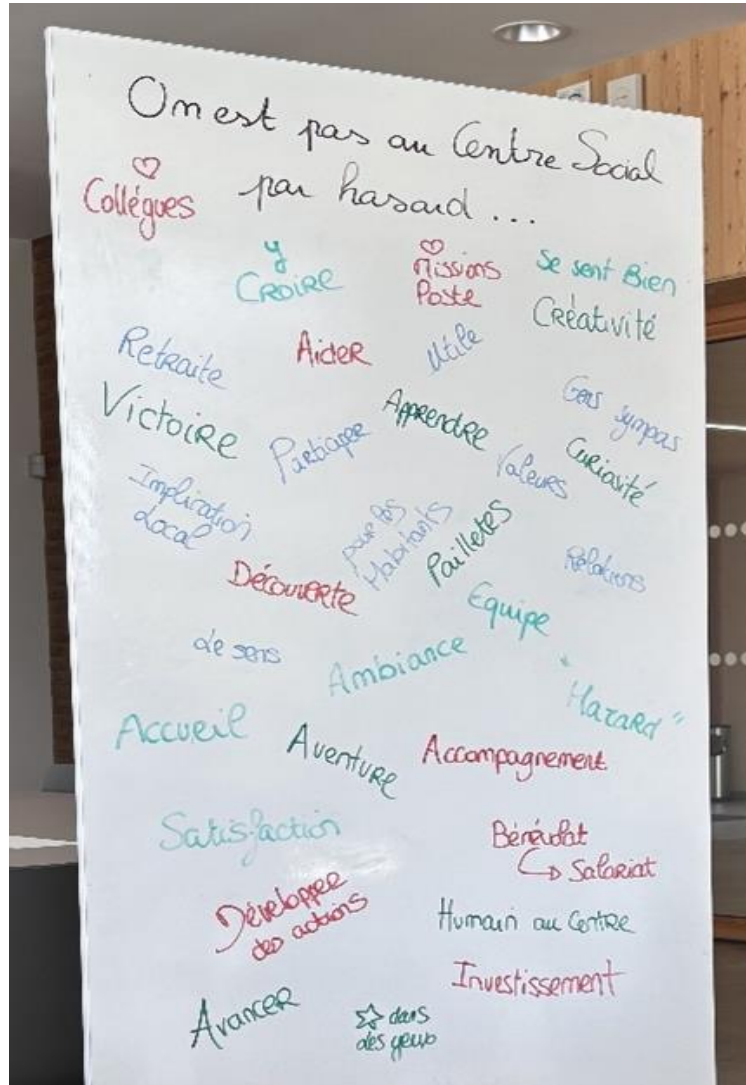 On est pas au Centre Social
par hasard ...
Collégues
y
CROIRE
Missions
Poste
Se sent Bien
Créativité
Retraite
Aider
Utile
Gens sympas
Victoire
Partager
Apprendre
Valeurs
Curiosité
Implication
Local
pour les
Habitants
Pailletes
Relations
Découverte
Equipe
Le sens
Ambiance
"Hazard"
Accueil
Aventure
Accompagnement
Satisfaction
Bénévolat
↳ Salariat
Développer
des actions
Humain au Centre
Investissement
Avancer
☆ dans
des yeux